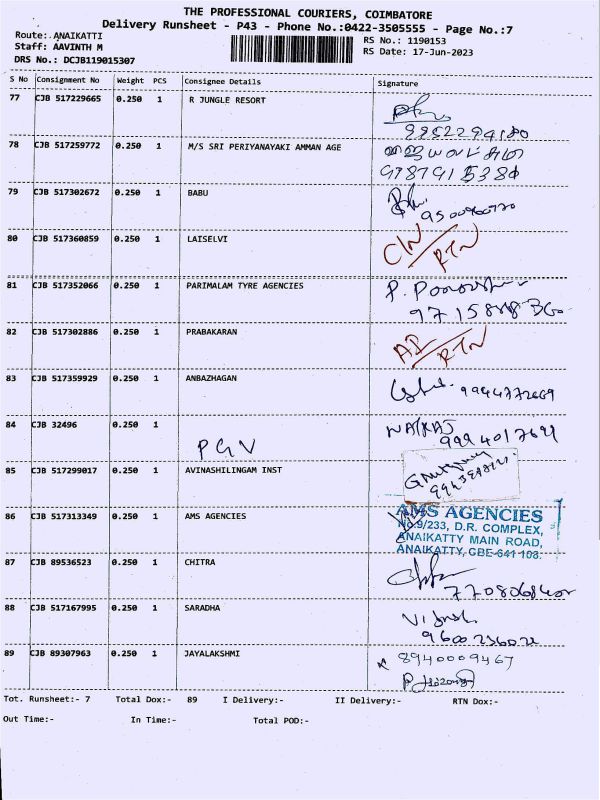 THE PROFESSIONAL COURIERS, COIMBATORE
Delivery Runsheet - P43 - Phone No.:0422-3505555 - Page No.:7
Route: ANAIKATTI
RS No.: 1190153
Staff: AAVINTH M
RS Date: 17-Jun-2023
DRS No.: DCJB119015307
S No Consignment No Weight PCS Consignee Details Signature
77 CJB 517229665 0.250 1 R JUNGLE RESORT
78 CJB 517259772 0.250 1 M/S SRI PERIYANAYAKI AMMAN AGE
79 CJB 517302672 0.250 1 BABU
80 CJB 517360859 0.250 1 LAISELVI
RTN
81 CJB 517352066 0.250 1 PARIMALAM TYRE AGENCIES
82 CJB 517302886 0.250 1 PRABAKARAN
RTN
83 CJB 517359929 0.250 1 ANBAZHAGAN
84 CJB 32496 0.250 1
PGV
85 CJB 517299017 0.250 1 AVINASHILINGAM INST
86 CJB 517313349 0.250 1 AMS AGENCIES
AMS AGENCIES
No.9/233, D.R. COMPLEX,
ANAIKATTY MAIN ROAD,
ANAIKATTY, CBE-641 108.
87 CJB 89536523 0.250 1 CHITRA
88 CJB 517167995 0.250 1 SARADHA
89 CJB 89307963 0.250 1 JAYALAKSHMI
8940009467
Tot. Runsheet:- 7 Total Dox:- 89 I Delivery:- II Delivery:- RTN Dox:-
Out Time:- In Time:- Total POD:-